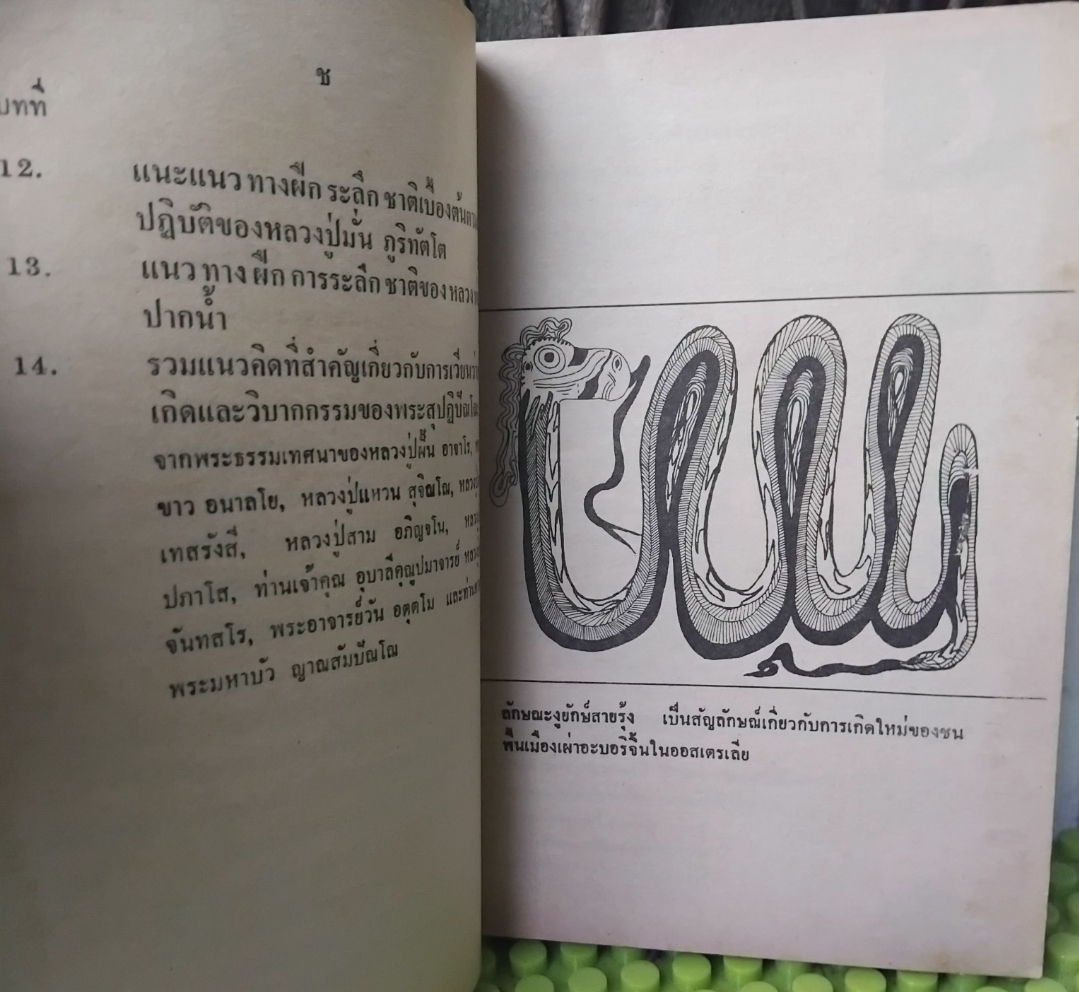 ช
บทที่
12. แนะแนวทางฝึกระลึกชาติเบื้องต้นตาม
ปฏิบัติของหลวงปู่มั่น ภูริทัตโต
13. แนวทางฝึกการระลึกชาติของหลวง
ปากน้ำ
14. รวมแนวคิดที่สำคัญเกี่ยวกับการเวียนว่าย
เกิดและวิบากกรรมของพระสุปฏิปันโน
จากพระธรรมเทศนาของหลวงปู่ฝั้น อาจาโร,
ขาว อนาลโย, หลวงปู่แหวน สุจิณโณ,
เทสรังสี, หลวงปู่สาม อภิญจโน,
ปภาโส, ท่านเจ้าคุณ อุบาลีคุณูปมาจารย์
จันทสโร, พระอาจารย์วัน อุตตโม
พระมหาบัว ญาณสัมปัณโณ
ลักษณะงูยักษ์สายรุ้ง เป็นสัญลักษณ์เกี่ยวกับการเกิดใหม่ของชน
พื้นเมืองเผ่าอะบอริจิ้นในออสเตรเลีย